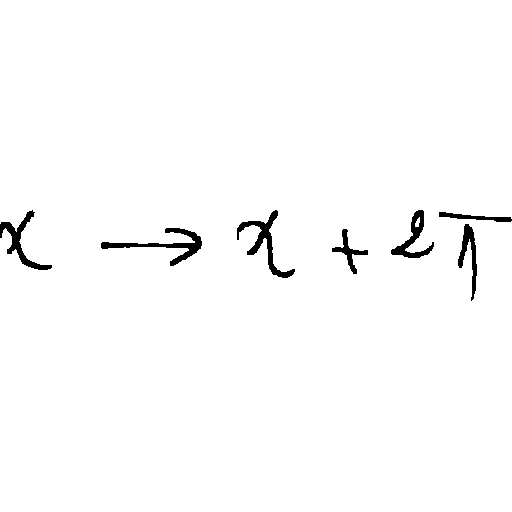 x → x + 2π